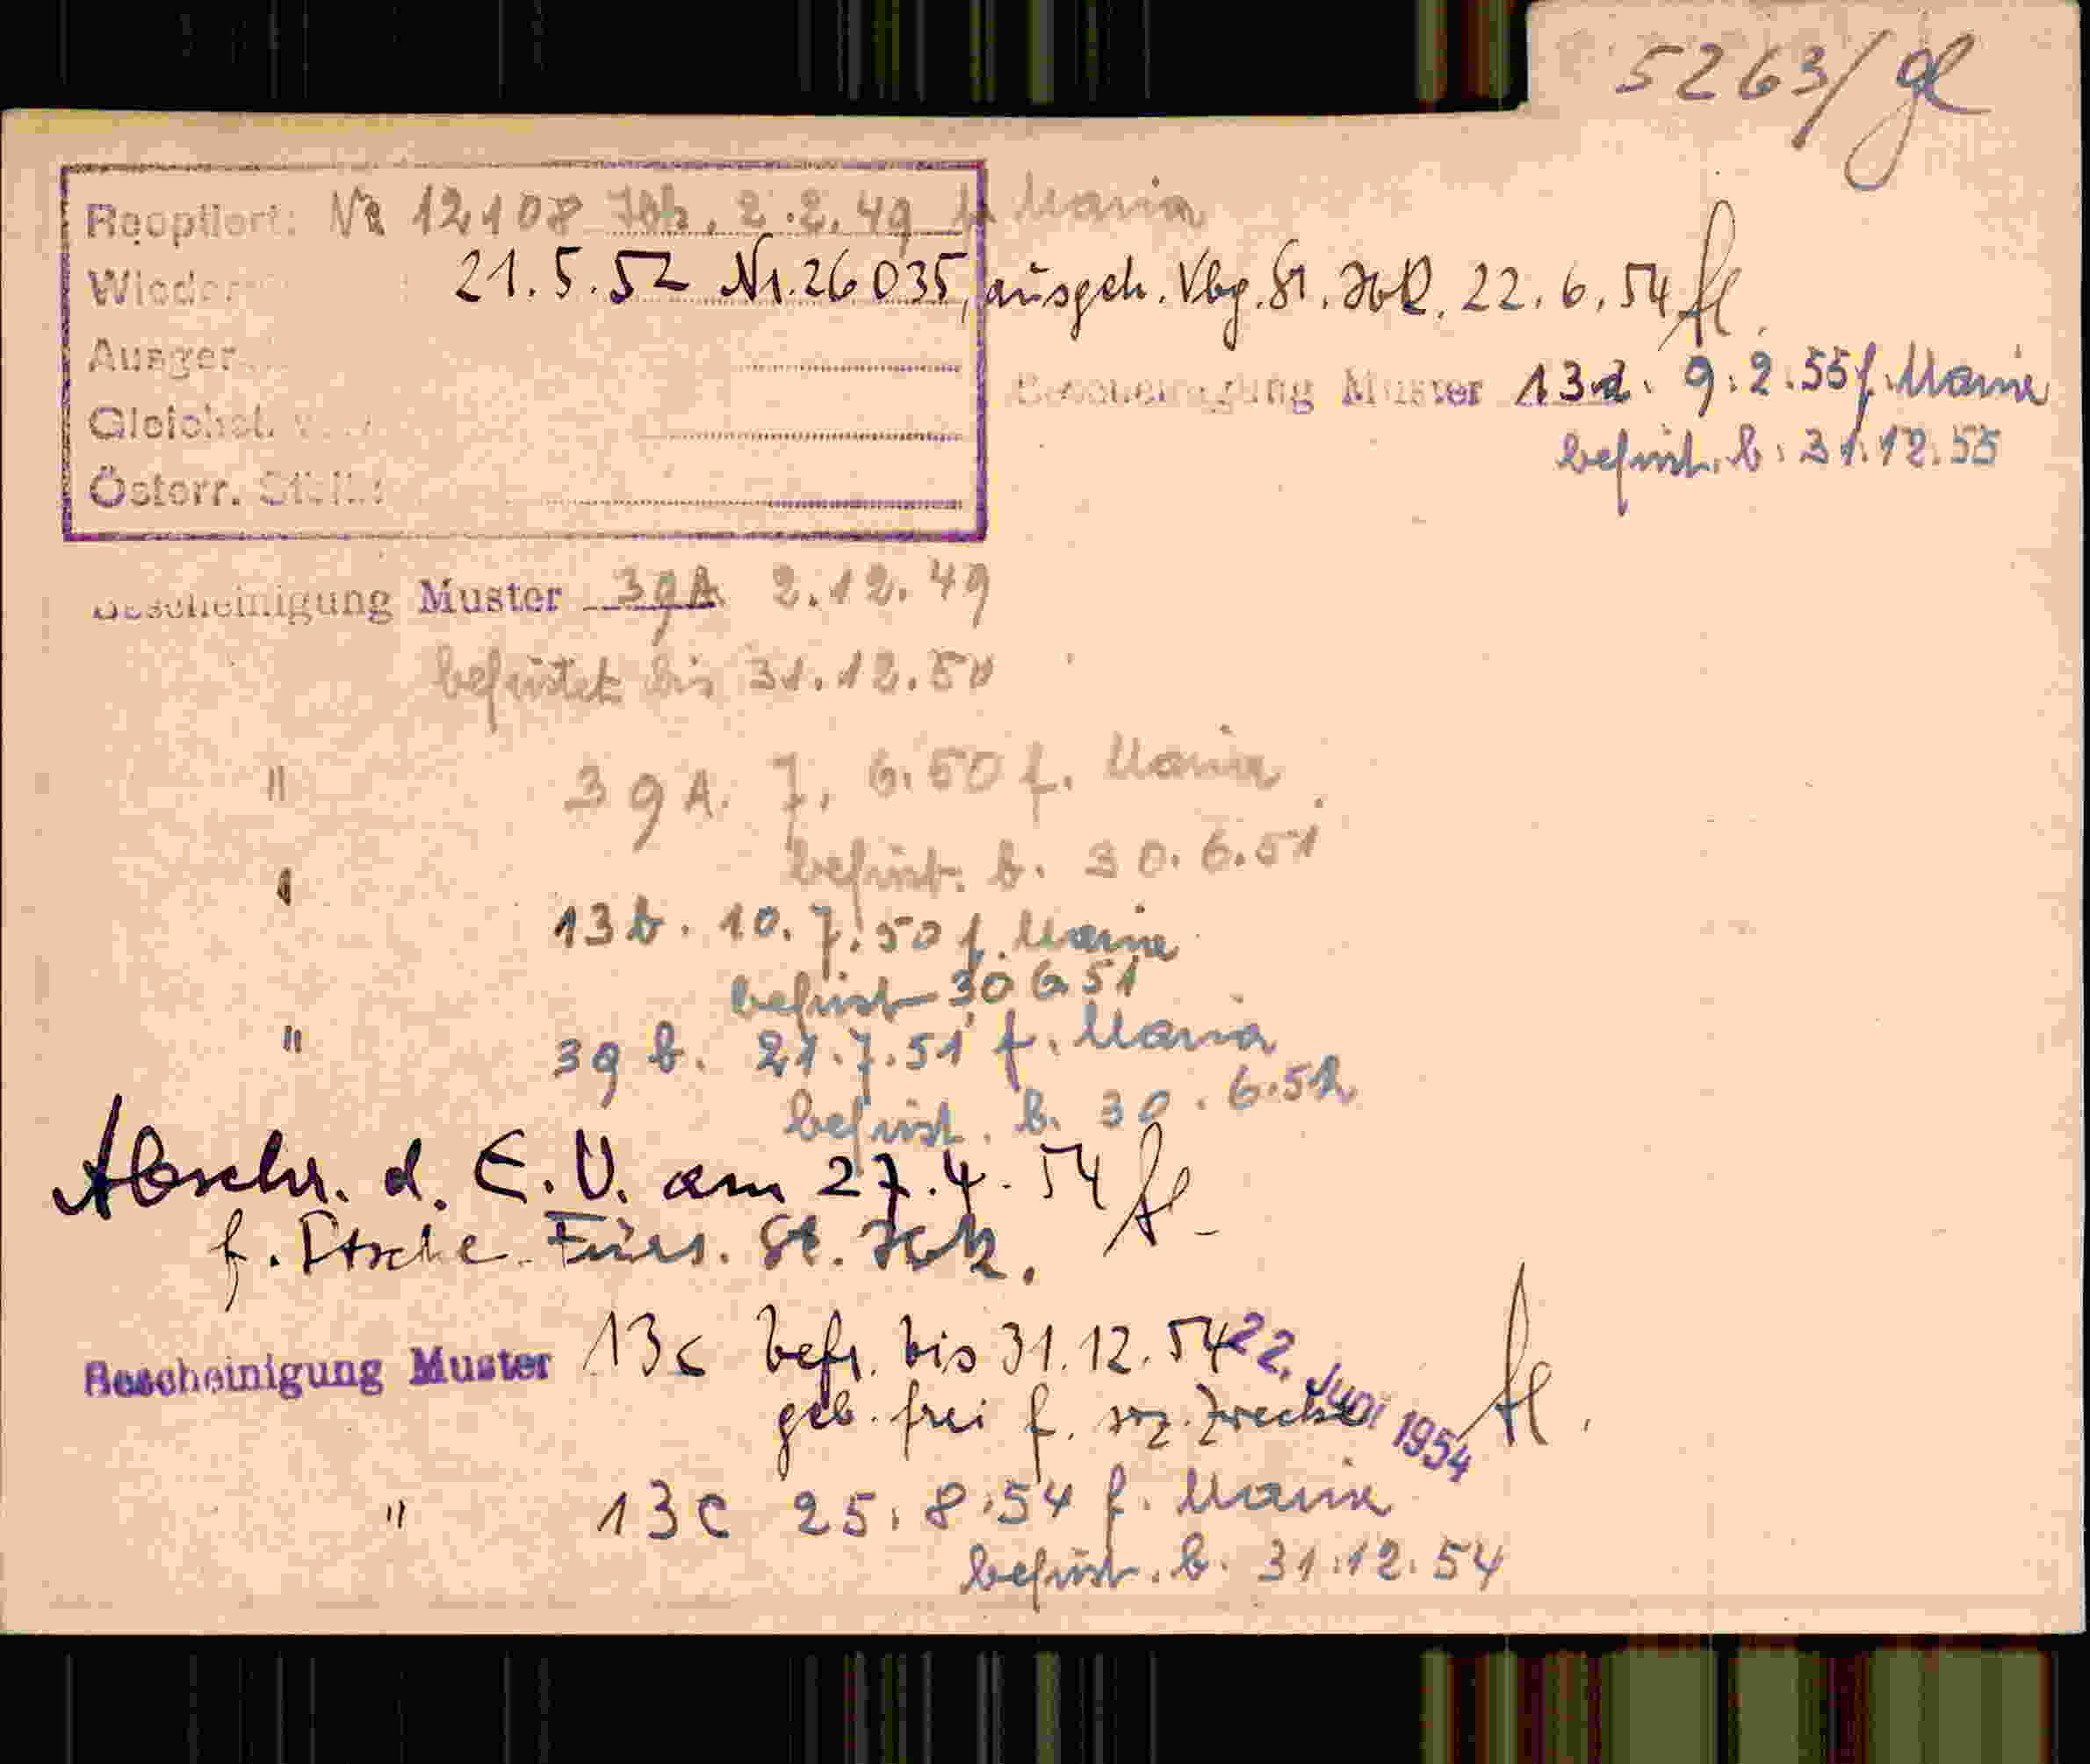 5263/gl
Reoptiert: Nr 12108 Joh. 2.2.49 u Maria
Wieder 21.5.52 Nr. 26035, ausgeh. Vbg. St. Joh. 22.6.54
Ausger
Bescheinigung Muster 13d. 9.2.55 f. Maria
Gleichst. v.
befrist. b. 31.12.55
Österr.
Bescheinigung Muster 39A 2.12.49
befristet bis 31.12.50
" 39A. 7.6.50 f. Maria
befrist. b. 30.6.51
" 13b. 10.7.50 f. Maria
befrist 30 6 51
" 39b. 21.7.51 f. Maria
befrist. b. 30.6.52
Abschr. d. E.V. am 27.4.54
f. Dtsche Fürs. St. Joh.
Bescheinigung Muster 13c befr. bis 31.12.54 22. Juni 1954
geb. frei f. soz. Zwecke
" 13c 25.8.54 f. Maria
befrist. b. 31.12.54